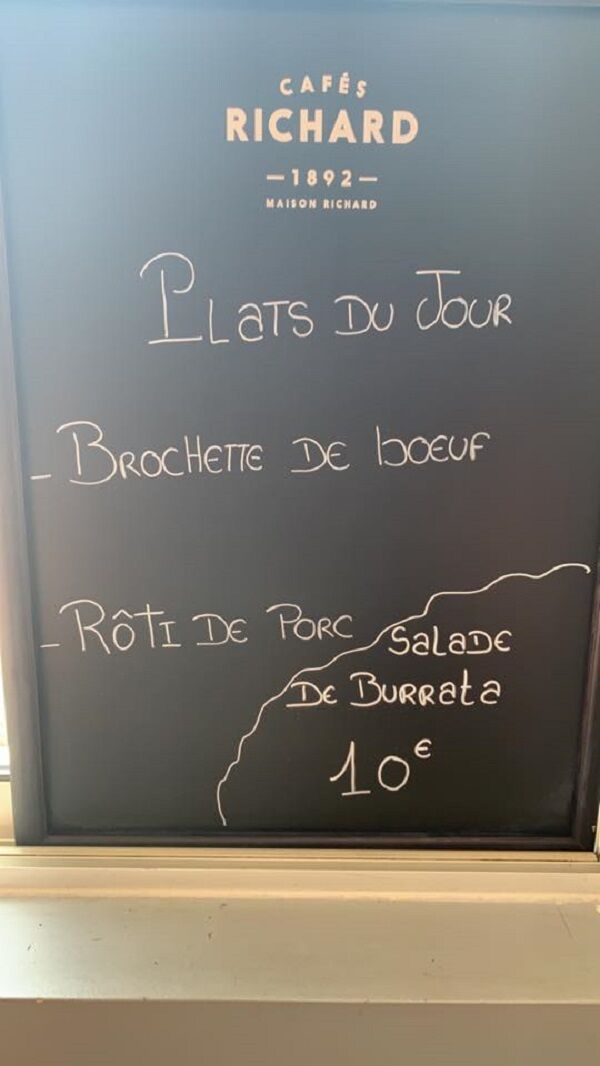 CAFÉS
RICHARD
—1892—
MAISON RICHARD
PLaTS DU JOUR
- BROCHETTE DE bOEUF
- RÔTI DE PORC
SaLaDE
DE BURRata
10€